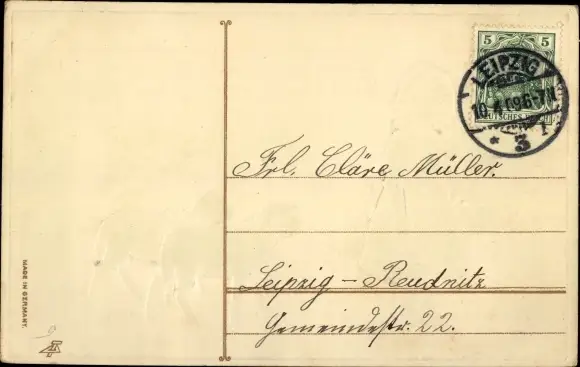 5 5
LEIPZIG
10.4.09.6-7N
DEUTSCHES REICH
* 3
Frl. Cläre Müller.
Leipzig - Reudnitz
Gemeindestr. 22.
MADE IN GERMANY.